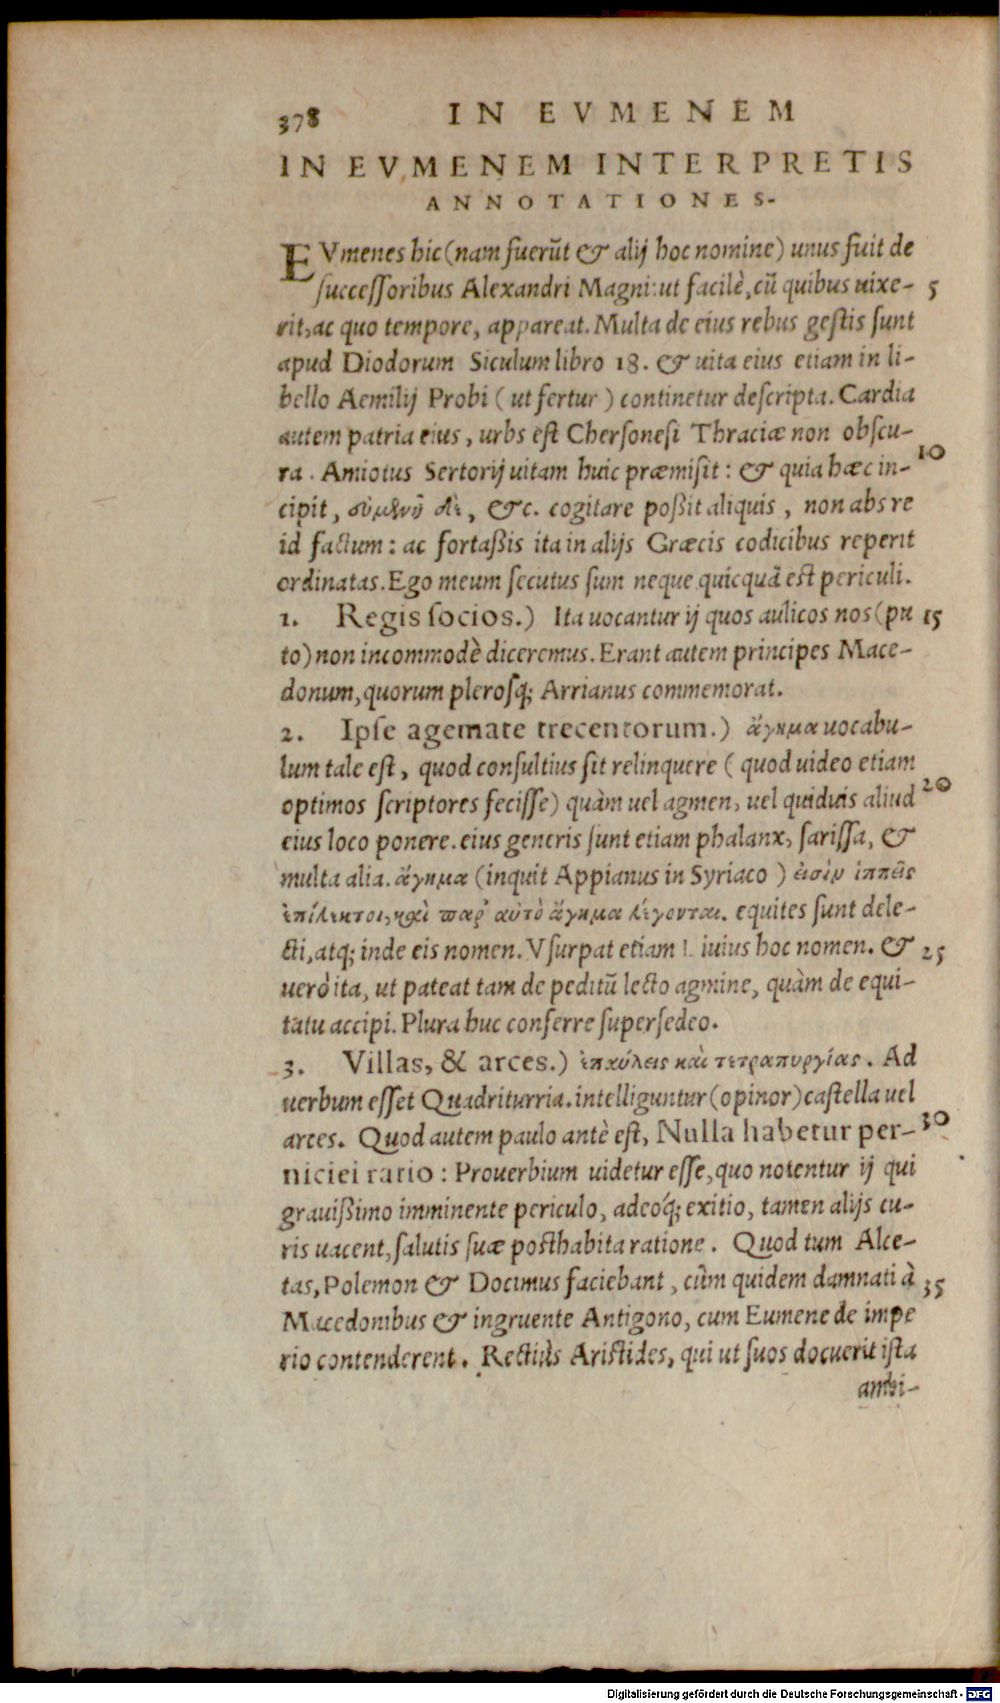 378 IN EVMENEM
IN EVMENEM INTERPRETIS
ANNOTATIONES.
EVmenes hic (nam fuerũt & alij hoc nomine) unus fuit de
successoribus Alexandri Magni: ut facilè, cũ quibus uixe- 5
rit, ac quo tempore, appareat. Multa de eius rebus gestis sunt
apud Diodorum Siculum libro 18. & uita eius etiam in li-
bello Aemilij Probi (ut fertur) continetur descripta. Cardia
autem patria eius, urbs est Chersonesi Thraciæ non obscu-
ra. Amiotus Sertorij uitam huic præmisit: & quia hæc in- 10
cipit, &c. cogitare poßit aliquis, non abs re
id factum: ac fortaßis ita in alijs Græcis codicibus reperit
ordinatas. Ego meum secutus sum neque quicquã est periculi.
1. Regis socios.) Ita uocantur ij quos aulicos nos (pu 15
to) non incommodè diceremus. Erant autem principes Mace-
donum, quorum plerosq; Arrianus commemorat.
2. Ipse agemate trecentorum.) ἄγημα uocabu-
lum tale est, quod consultius sit relinquere (quod uideo etiam
optimos scriptores fecisse) quàm uel agmen, uel quiduis aliud 20
eius loco ponere. eius generis sunt etiam phalanx, sarissa, &
multa alia. ἄγημα (inquit Appianus in Syriaco) εἰσὶν ἱππεῖς
ἐπίλεκτοι, καὶ παρ' αὐτὸ ἄγημα λέγονται. equites sunt dele-
cti, atq; inde eis nomen. Vsurpat etiam Liuius hoc nomen. & 25
uerò ita, ut pateat tam de peditũ lecto agmine, quàm de equi-
tatu accipi. Plura huc conferre supersedeo.
3. Villas, & arces.) ἐπαύλεις καὶ τετραπυργίας. Ad
uerbum esset Quadriturria. intelliguntur (opinor) castella uel
arces. Quod autem paulo antè est, Nulla habetur per- 30
niciei ratio: Prouerbium uidetur esse, quo notentur ij qui
grauißimo imminente periculo, adeóq; exitio, tamen alijs cu-
ris uacent, salutis suæ posthabita ratione. Quod tum Alce-
tas, Polemon & Docimus faciebant, cùm quidem damnati à 35
Macedonibus & ingruente Antigono, cum Eumene de impe
rio contenderent. Rectiùs Aristides, qui ut suos docuerit ista
ambi-
Digitalisierung gefördert durch die Deutsche Forschungsgemeinschaft - DFG